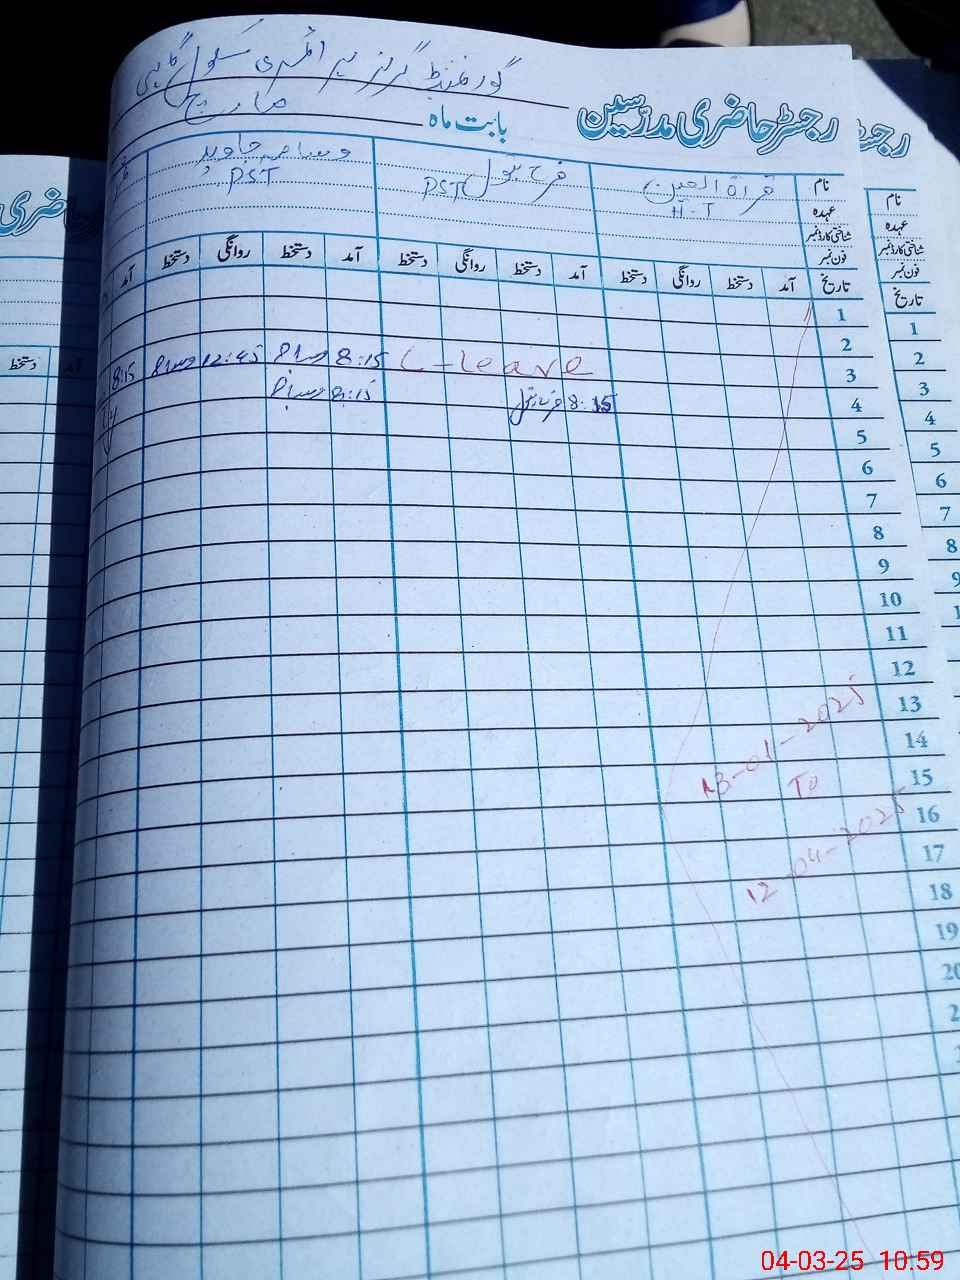 گورنمنٹ گرلز پرائمری سکول
رجسٹر حاضری مدرسین
بابت ماہ مارچ
نام قراۃ العین فرح بتول جاوید
عہدہ H-T PST PST
شناختی کارڈ نمبر
فون نمبر
تاریخ آمد دستخط روانگی دستخط آمد دستخط روانگی دستخط آمد دستخط روانگی دستخط آمد
1
2
3 C-Leave 8:15 12:45 8:15
4 8:15 8:15
5
6
7
8
9
10
11
12
13
14
15
16
17
18
19
20
13-01-2025
To
12-04-2025
رجسٹ
نام
عہدہ
شناختی کارڈ نمبر
فون نمبر
تاریخ
1
2
3
4
5
6
7
8
9
حاضری
دستخط آمد
04-03-25 10.59